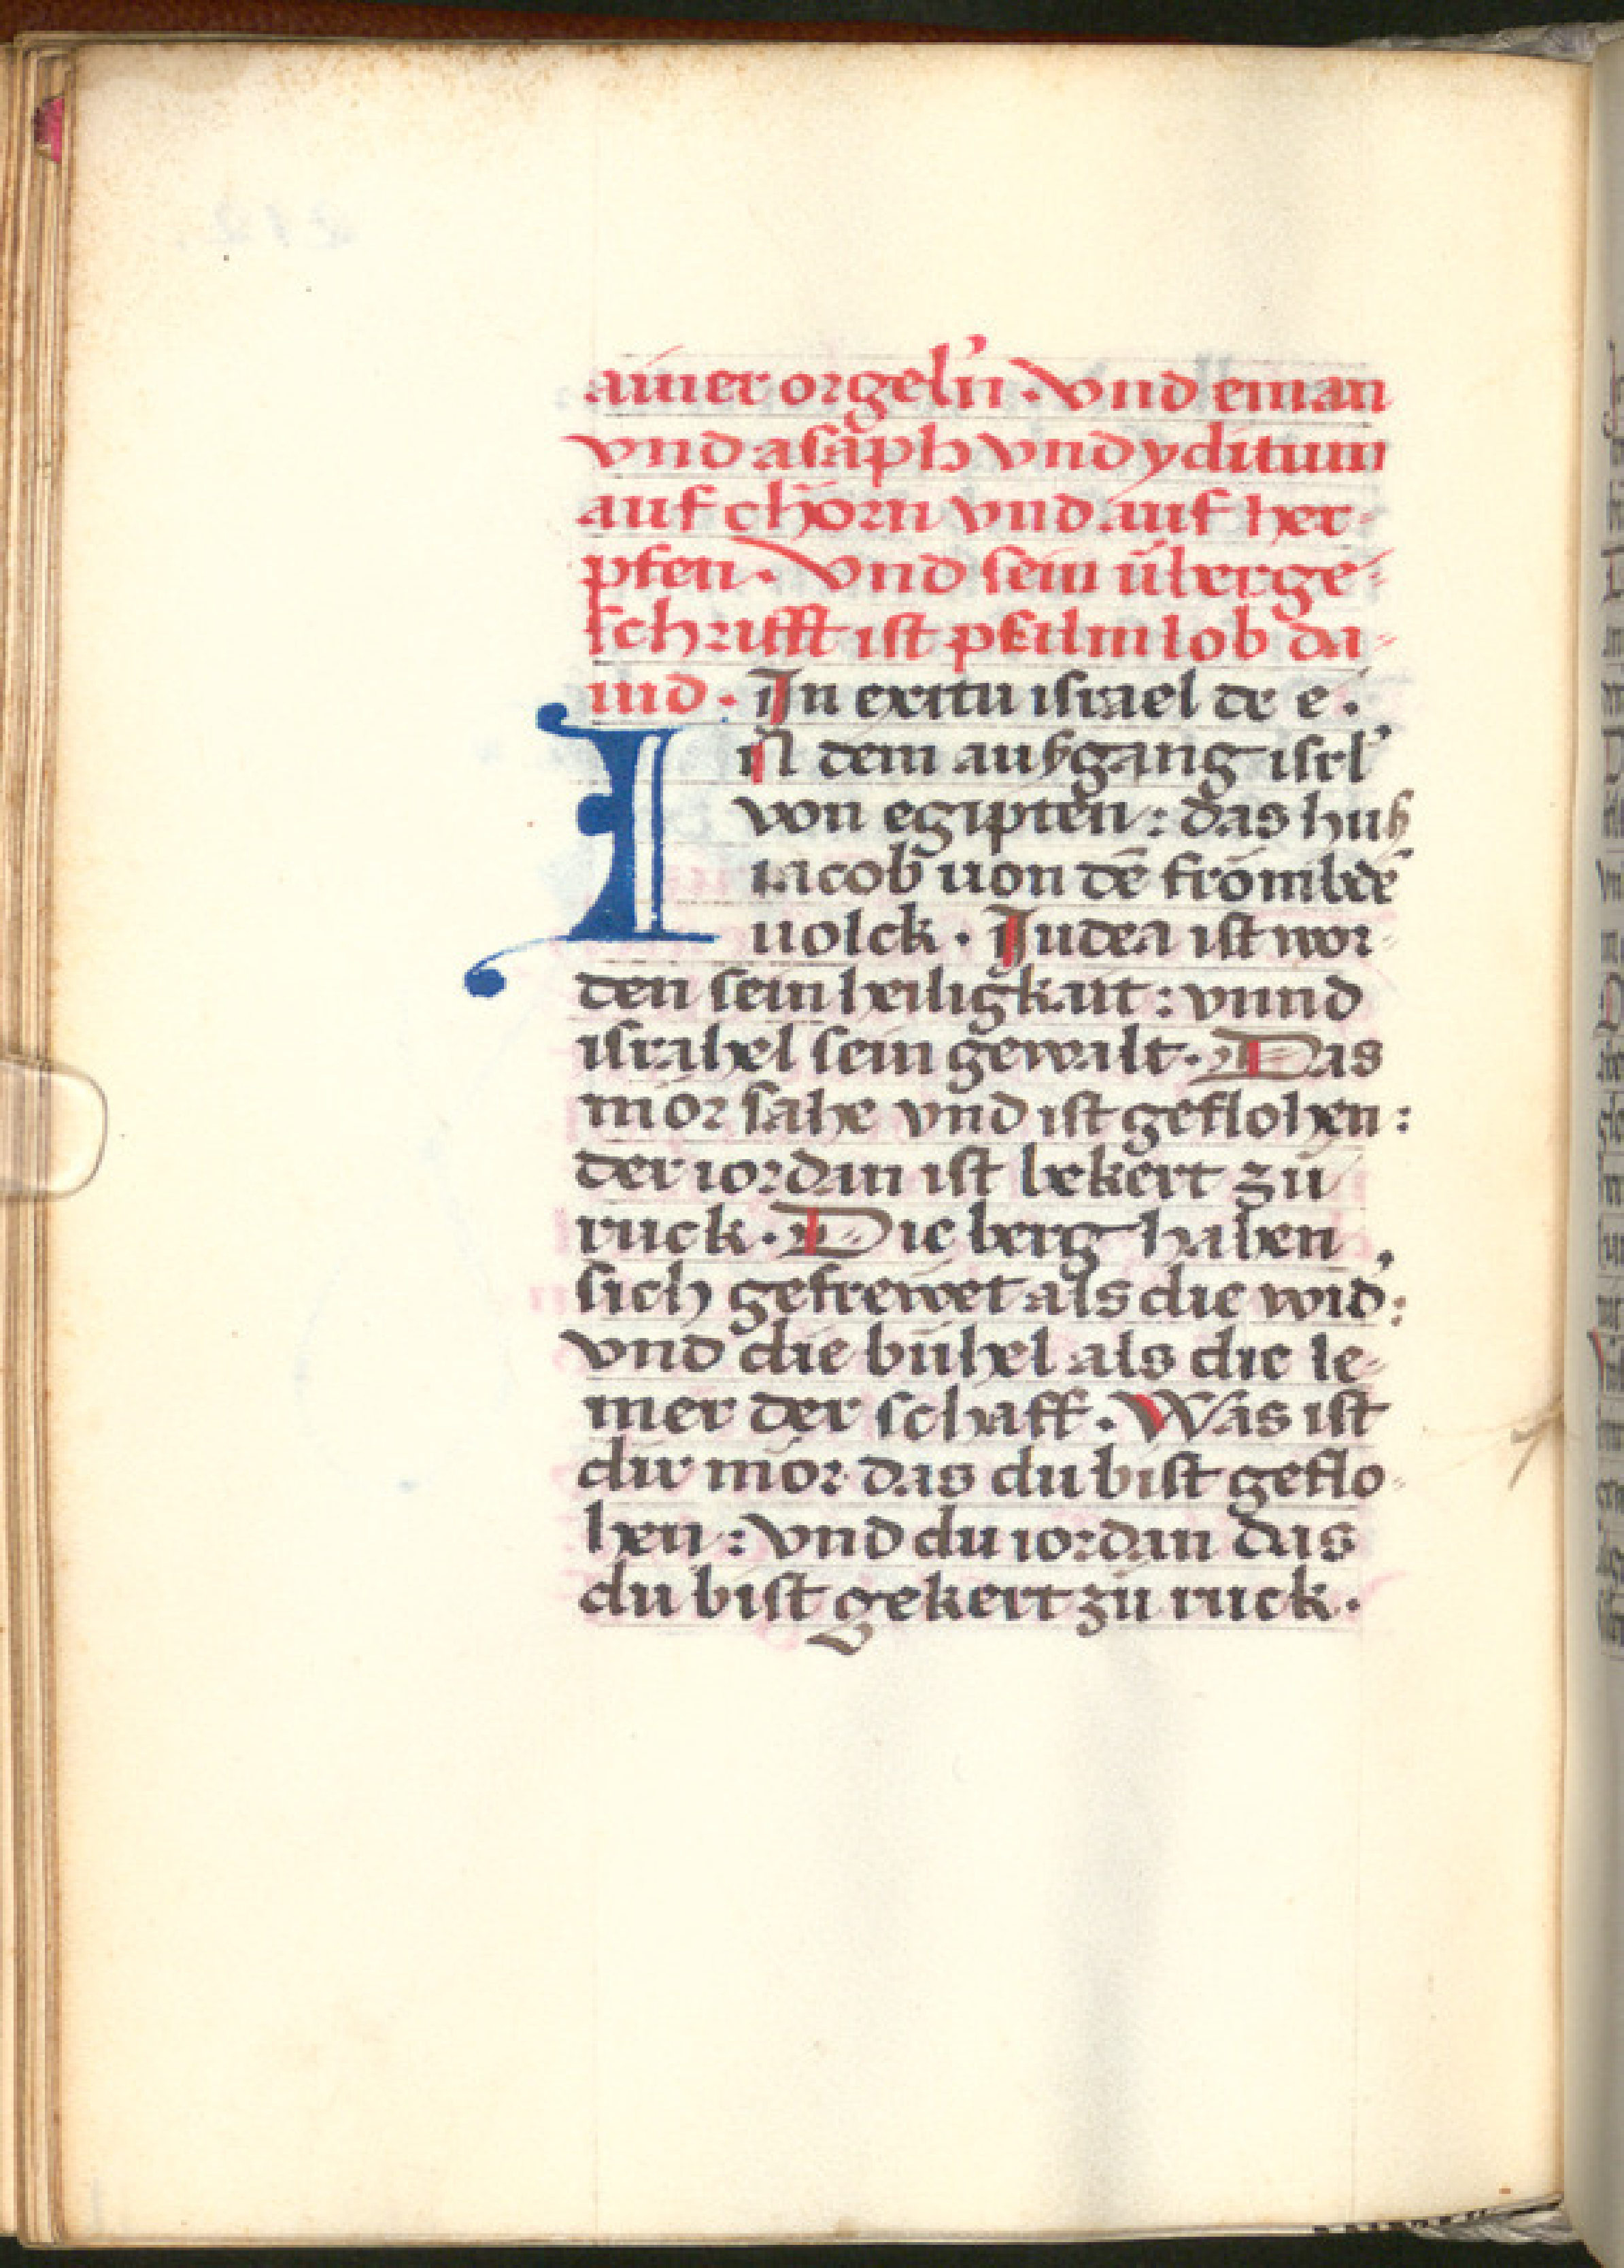 ainer orgeln̄ · vnd eman
vnd asaph vnd yditum
auf chorn vnd auf her-
pfen · Vnd sein überge-
schrifft ist psalm lob da-
uid · In exitu israel de e ·
IN dem auſzgang isrl'
von egipten : das husz
iacob uon dē frömbdē
uolck · Judea ist wor-
den sein heiligkait : vnnd
israhel sein gewalt · Das
mör sahe vnd ist geflohen :
der iordan ist bekert zu
ruck · Die berg haben
sich gefrewet als die wid' :
vnd die bühel als die le-
mer der schaff · Was ist
dir mör das du bist geflo-
hen : vnd du iordan das
du bist gekert zu ruck ·